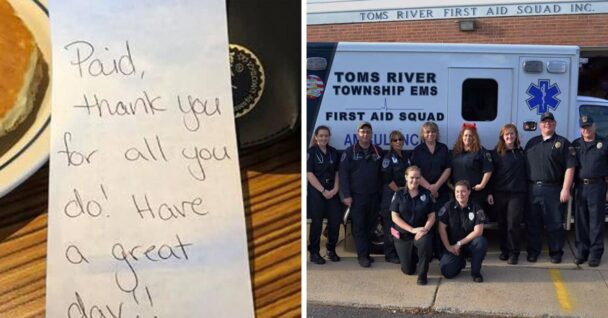 Paid,
thank you
for all you
do! Have
a great
day!!
TOMS RIVER FIRST AID SQUAD INC.
TOMS RIVER
TOWNSHIP EMS
FIRST AID SQUAD
AMBULANCE